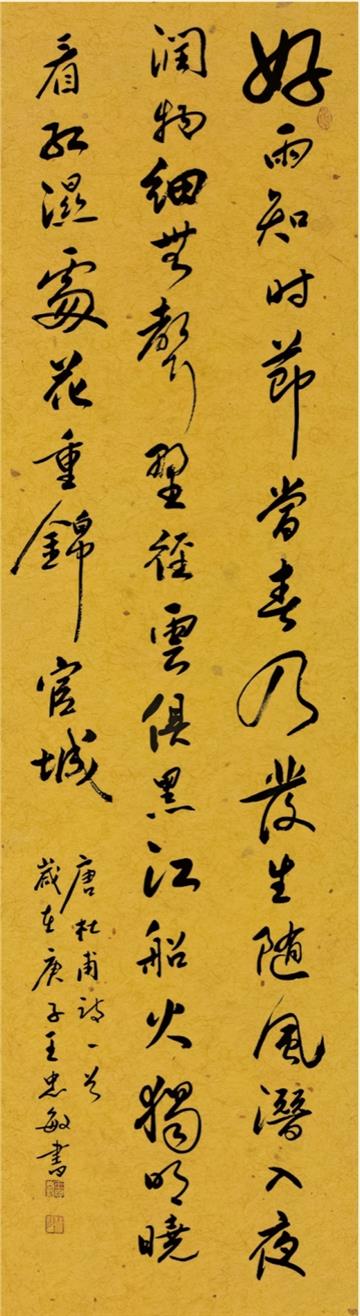 好雨知时節當春乃發生随風潛入夜
润物細無聲野徑雲俱黑江船火獨明曉
看紅濕處花重錦官城
唐杜甫詩一首
歲在庚子王忠敏書